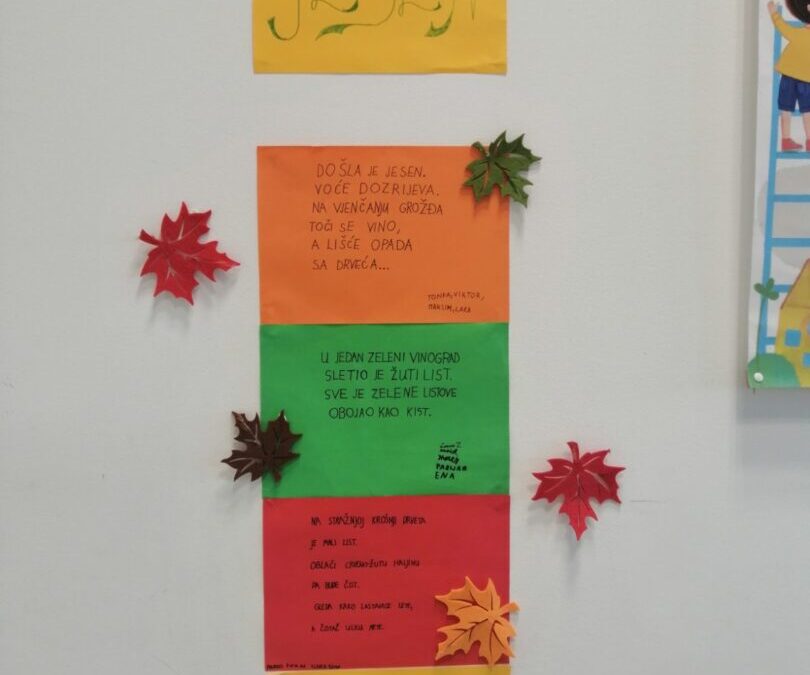 DOŠLA JE JESEN.
VOĆE DOZRIJEVA.
NA VJENČANJU GROŽĐA
TOČI SE VINO,
A LIŠĆE OPADA
SA DRVEĆA...
VIKTOR,
MAKSIM, LARA
U JEDAN ZELENI VINOGRAD
SLETIO JE ŽUTI LIST.
SVE JE ZELENE LISTOVE
OBOJAO KAO KIST.
ENA
NA STRAŽNJOJ KROŠNJI DRVETA
JE MALI LIST.
OBLAČI CRVENOŽUTU HALJINU
DA BUDE ČIST.
GLEDA KAKO LASTAVICE LETE,
A ČISTAČ ULICU METE.